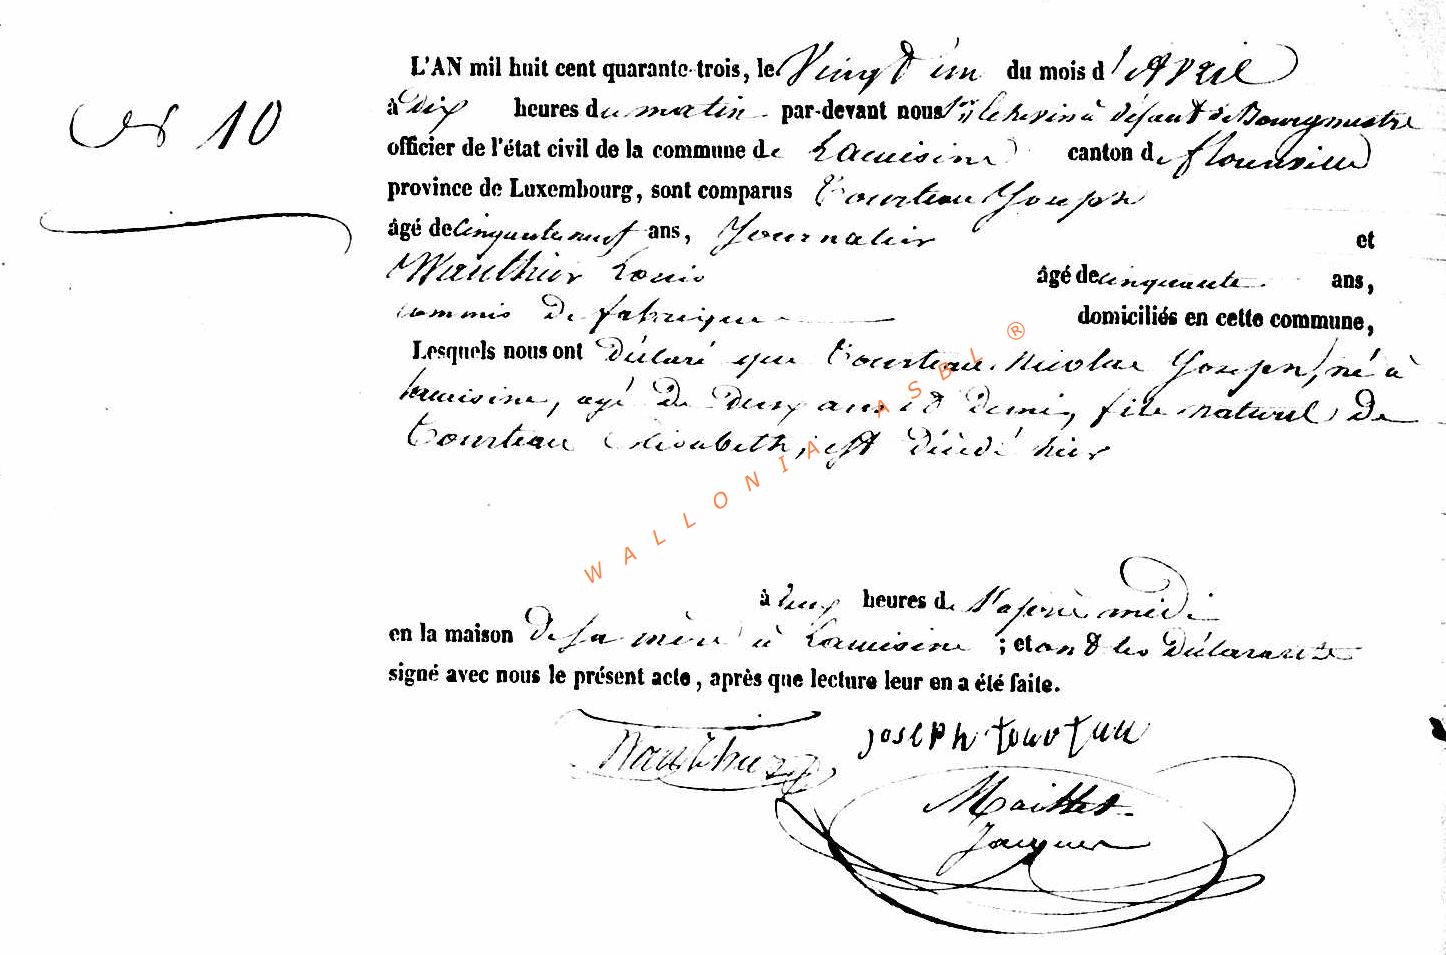 L'AN mil huit cent quarante-trois, le Vingt un du mois d'Avril
N° 10
à dix heures du matin par-devant nous echevin à défaut de Bourgmestre
officier de l'état civil de la commune de Lacuisine canton de florenville
province de Luxembourg, sont comparus Tourteau Joseph
âgé de cinquante neuf ans, Journalier et
Wauthier Louis âgé de cinquante ans,
commis de fabrique domiciliés en cette commune,
Lesquels nous ont déclaré que Tourteau Nicolas Joseph, né à
Lacuisine, agé de deux ans et demi, fils naturel de
Tourteau Elisabeth, est décédé hier
à heures de l'après midi
en la maison de sa mère à Lacuisine ; et ont les déclarants
signé avec nous le présent acte, après que lecture leur en a été faite.
Wauthier joseph tourteau
Maillet
Jacques
WALLONIA ASBL ®